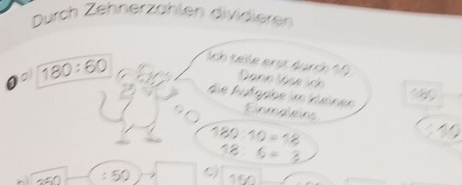 Durch Zehnerzahlen dividieren
1 a) 180 : 60
Ich teile erst durch 10.
Dann löse ich
die Aufgabe im kleinen
Einmaleins.
180 : 10 = 18
18 : 6 = 3
180
: 10
350
: 50
c) 150